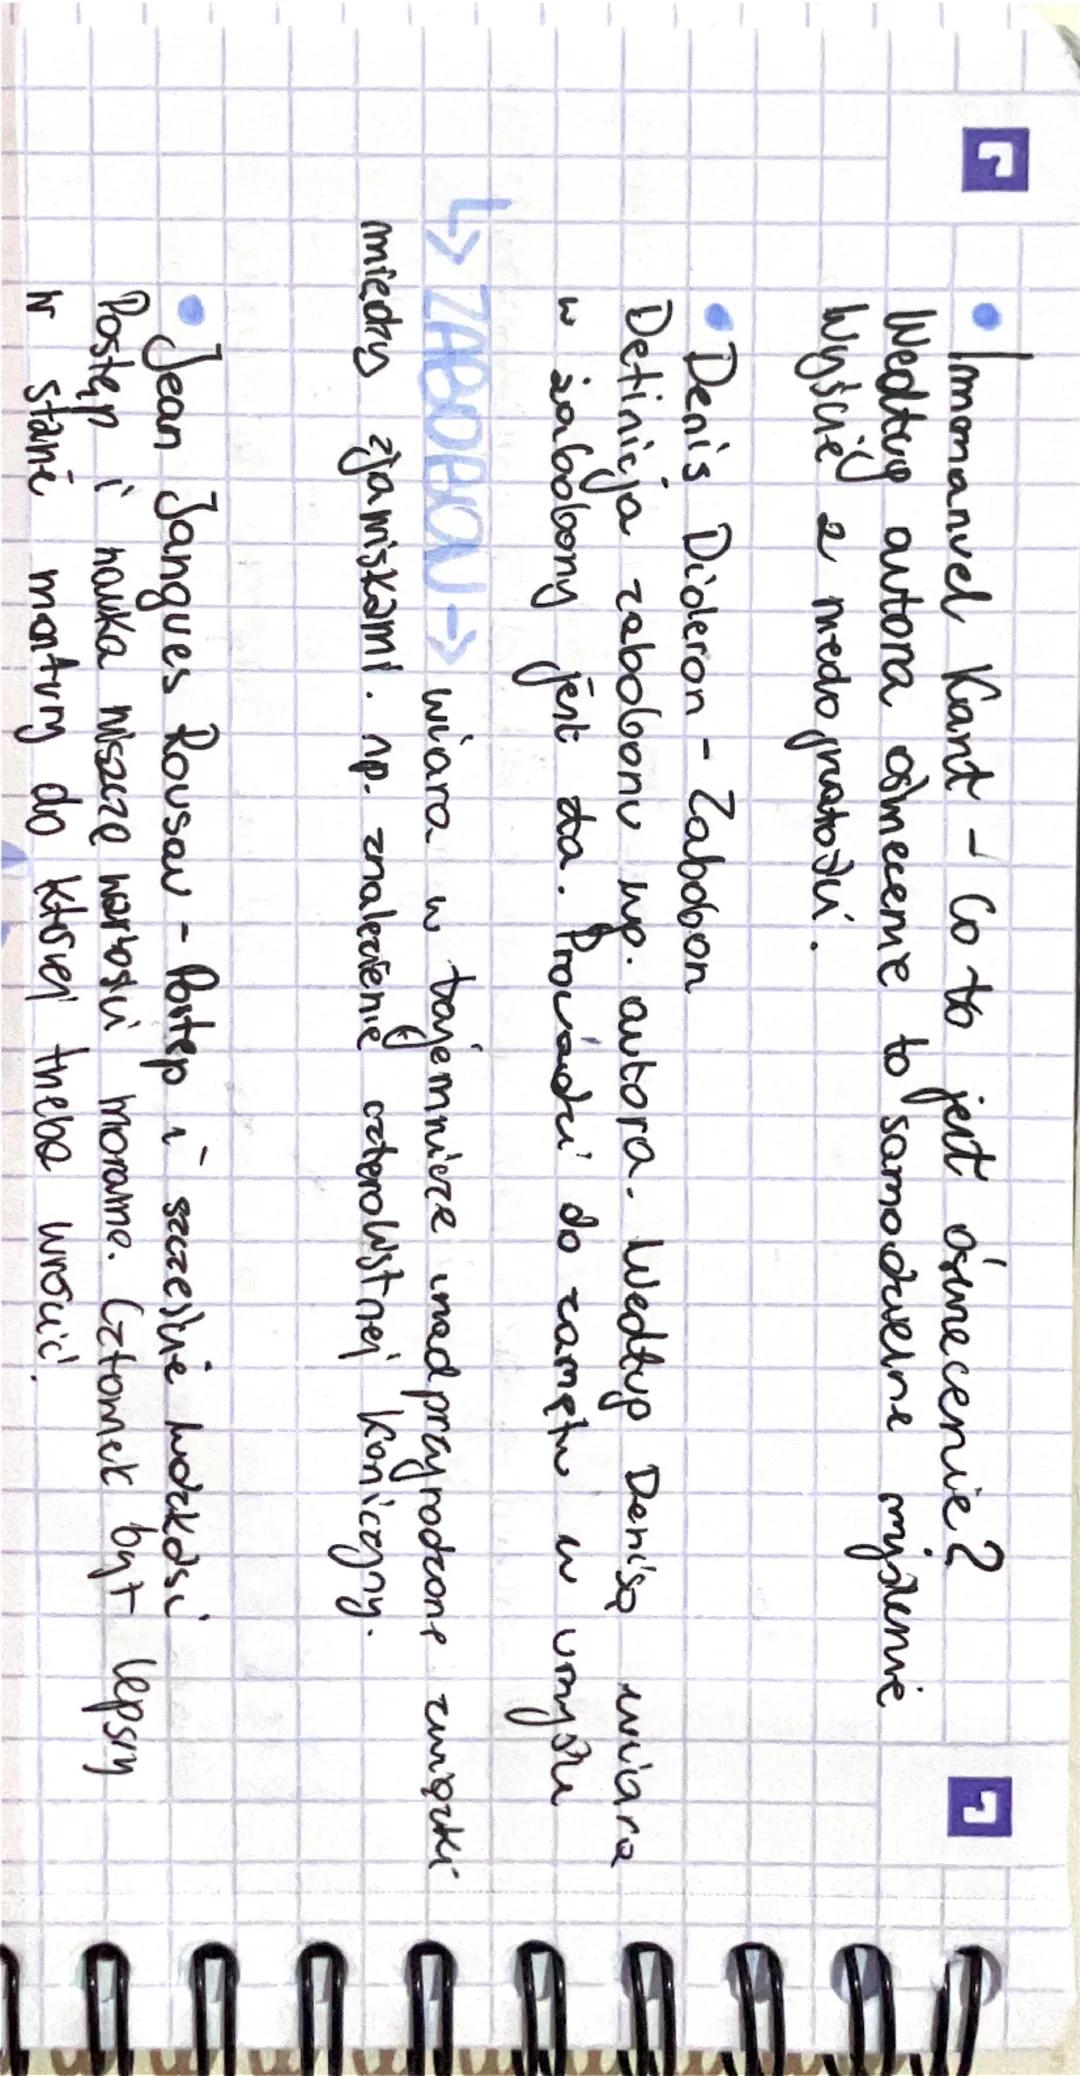 Immanuel Kant - Co to jest oświecenie?
Według autora oświecenie to samodzielne myślenie
Wyjście z niedojrzałości.
Denis Dideron - Zabobon
Definicja zabobonu wp. autora. Według Denisa wiara
w zabobony jest zła. Prowadzi do zamętu w umyśle
ZABOBON → wiara w tajemnicze nadprzyrodzone związki
między zjawiskami. np. znalezienie czterolistnej koniczyny.
Jean Jangues Rousau - Postęp i szczęście ludzkości
Postęp i nauka niszczę wartości moralne. Człowiek był lepszy
w stanie natury do której trzeba wrócić.